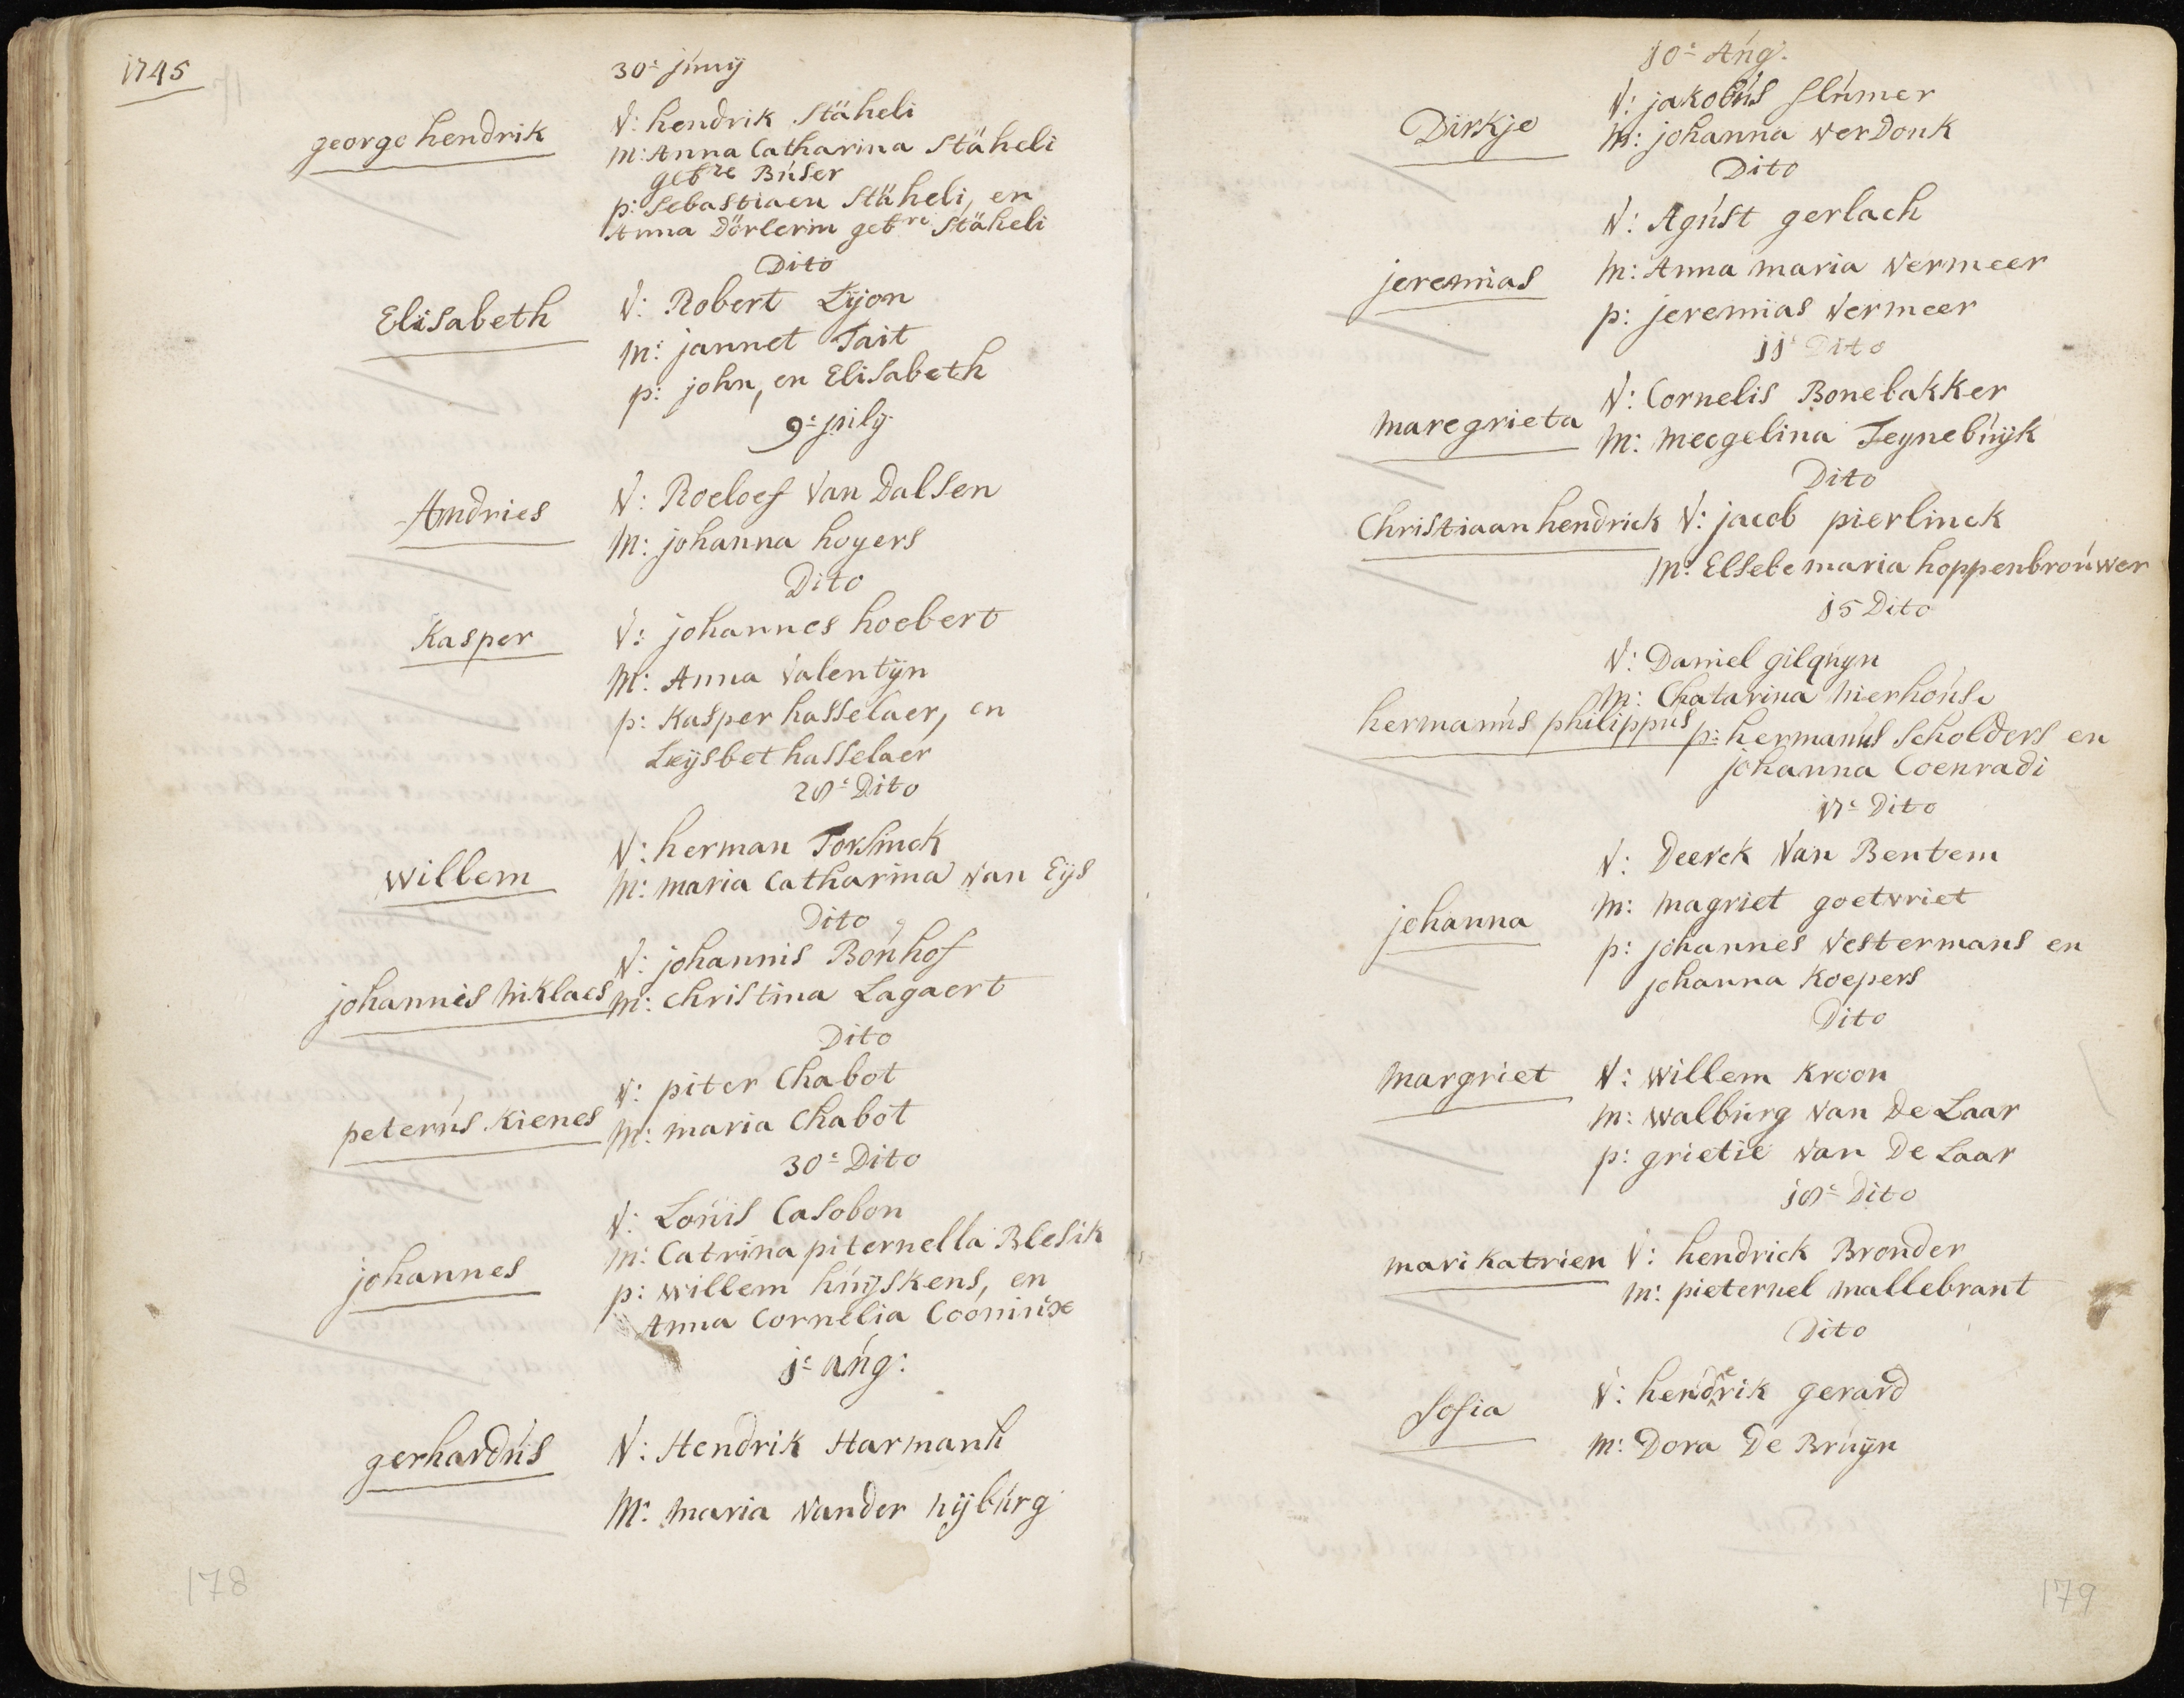 1745
30e junij
george hendrik
V: hendrik Stäheli
m: Anna Catharina Stäheli
gebre Búser
p: Sebastiaen Stäheli, en
Anna Dörlerin gebre Stäheli
Dito
Elisabeth
V: Robert Lyon
m: jannet Tait
p: john, en Elisabeth
9e july
Andries
V: Roeloef Van Dalsen
m: johanna hoyers
Dito
Kasper
V: johannes hoebert
m: Anna Valentyn
p: Kasper hasselaer, en
Leysbet hasselaer
28e Dito
willem
V: herman Torsinck
m: maria Catharina van Eys
Dito
V: johannis Bonhof
johannis niklaes
m: christina Lagaert
Dito
V: piter Chabot
peterús Kienes
m: maria Chabot
30e Dito
V: Loúis Casobon
m: Catrina piternella Blesik
johannes
p: willem húyskens, en
Anna Cornelia Cooninx
1e aúg:
gerhardús
V: Hendrik Harmanh
m: maria vander nybúrg
178
10e Aúg:
Dirkje
V: jakobús slúmer
m: johanna verDonk
Dito
V: Agúst gerlach
jeremias
m: Anna maria vermeer
p: jeremias Vermeer
11e Dito
maregrieta
V: Cornelis Bonebakker
m: meegelina Teynebúyk
Dito
Christiaan hendrick V: jacob pierlinck
m: Elsebe maria hoppenbroúwer
15 Dito
V: Daniel gilqúyn
m: Chatarina nierhoúse
hermanús philippus
p: hermanús Scholders en
johanna Coenradi
17e Dito
V: Deerck Van Bentem
johanna
m: magriet goetvriet
p: johannes Vestermans en
johanna Koepers
Dito
margriet
V: willem Kroon
m: walbúrg van De Laar
p: grietie van De Laar
18e Dito
mari katrien
V: hendrick Bronder
m: pieternel mallebrant
Dito
Sofia
V: henderik gerard
m: Dora De Brúyn
179